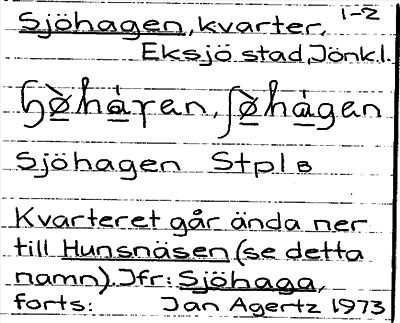 Sjöhagen, kvarter, 1-2
Eksjö stad, Jönk.l.
Sjöhagen Stpl B
Kvarteret går ända ner
till Hunsnäsen (se detta
namn). Jfr: Sjöhaga,
forts: Jan Agertz 1973